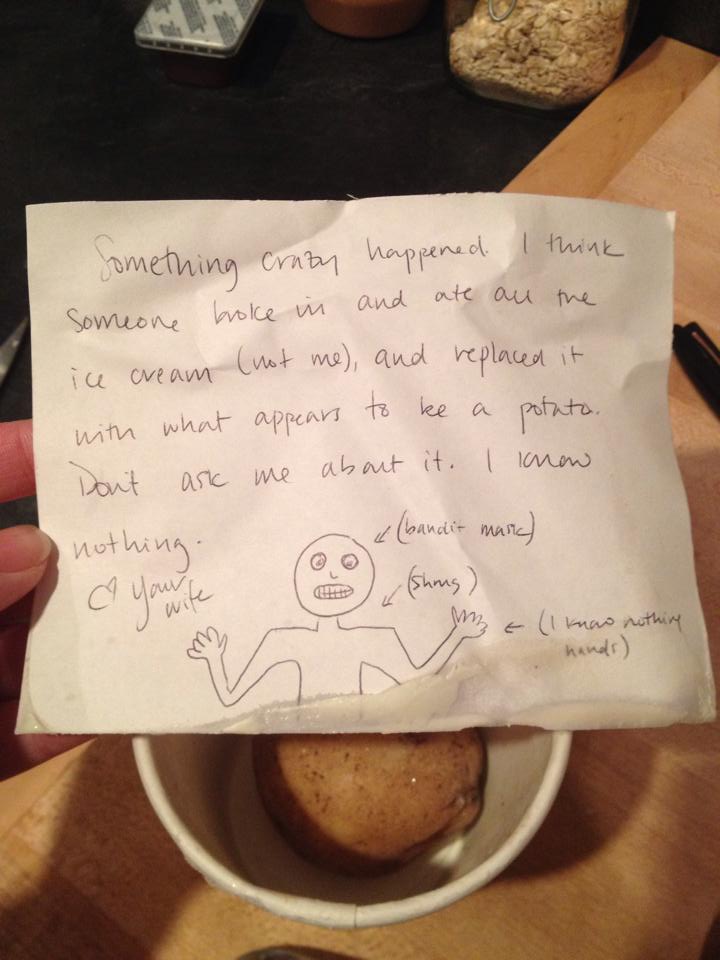 Something crazy happened. I think
someone broke in and ate all the
ice cream (not me), and replaced it
with what appears to be a potato.
Don't ask me about it. I know
nothing.
♡ your wife
(bandit mask)
(shrug)
(I know nothing hands)